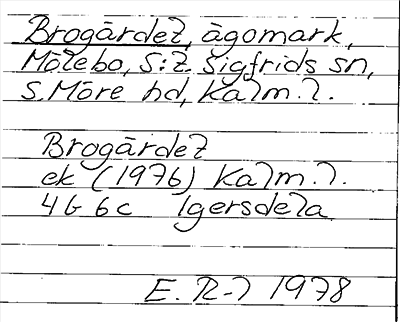 Brogärdet, ägomark,
Mölebo, S:t Sigfrids sn,
S. Möre hd, Kalm. l.
Brogärdet
ek (1976) Kalm. l.
4G 6c Igersdela
E. R-l 1978